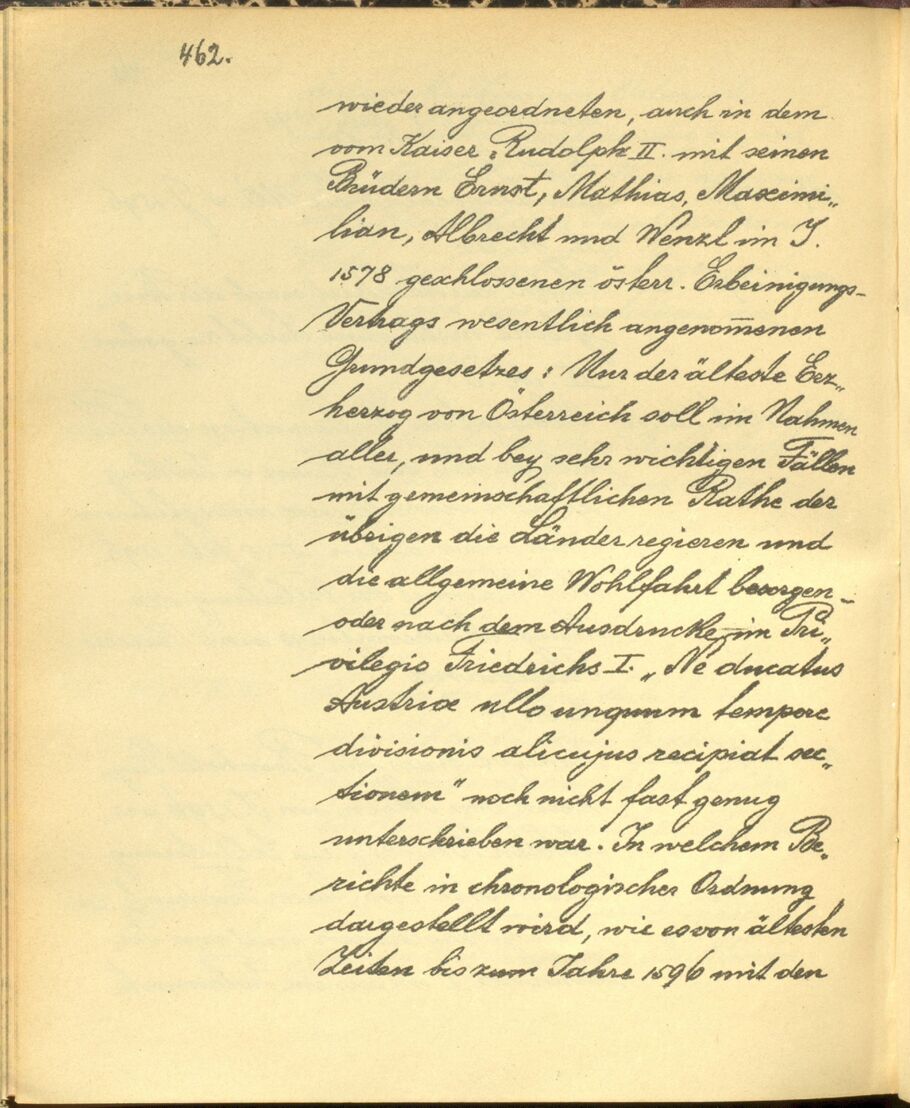 462.
wieder angeordneten, auch in dem
vom Kaiser Rudolph II. mit seinen
Brüdern Ernst, Mathias, Maximi„
lian, Albrecht und Wenzl im J.
1578 geschlossenen österr. Erbeinigungs-
Vertrags wesentlich angenom̅enen
Grundgesetzes: Nur der älteste Erz„
herzog von Österreich soll im Nahmen
aller, und bey sehr wichtigen Fällen
mit gemeinschaftlichen Rathe der
übrigen die Länder regieren und
die allgemeine Wohlfahrt besorgen -
oder nach dem Ausdrucke im Pri„
vilegio Friedrichs I. „Ne ducatus
Austriæ ullo unquum tempore
divisionis alicujus recipiat sec„
tionem" noch nicht fast genug
unterschrieben war. In welchem Be„
richte in chronologischer Ordnung
dargestellt wird, wie es von ältesten
Zeiten bis zum Jahre 1596 mit den